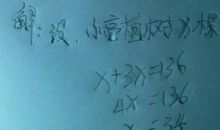 解:设,小亮植树x棵
x+3x=136
4x=136
x=34